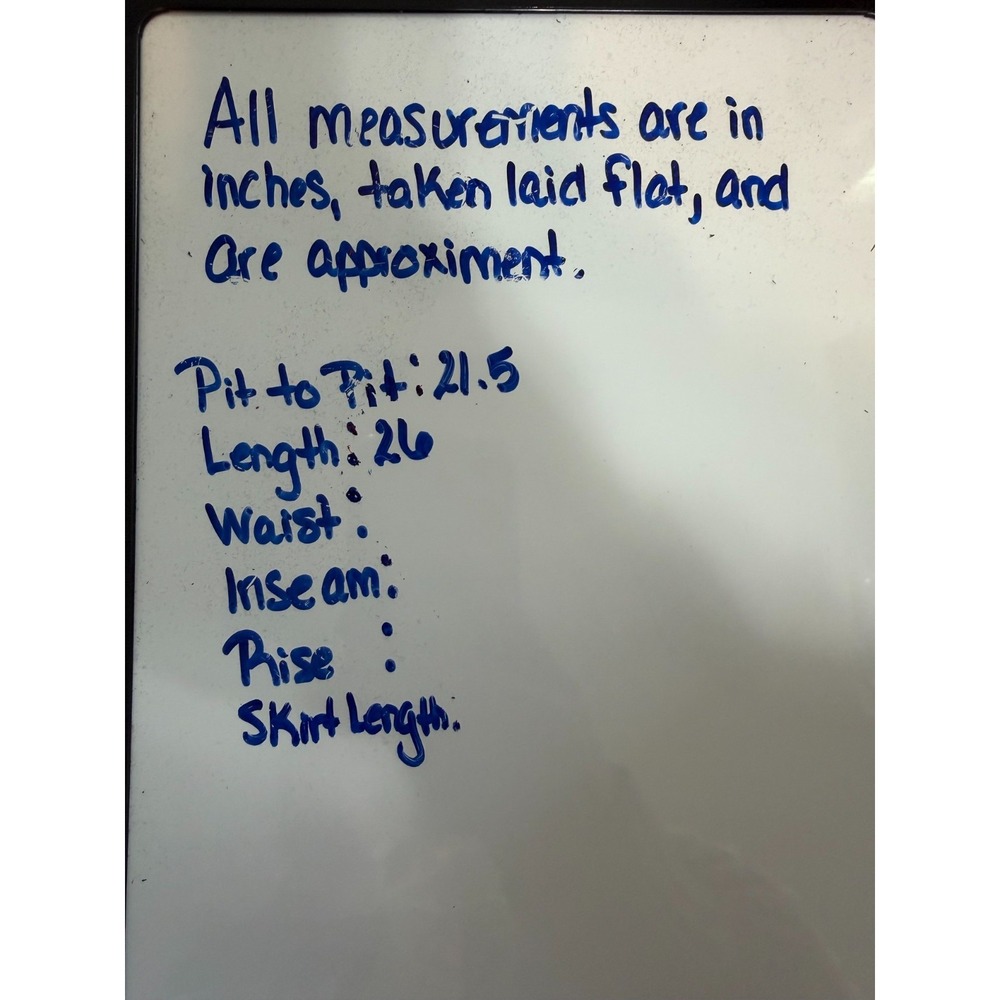 All measurements are in
inches, taken laid flat, and
are approximent.
Pit to Pit: 21.5
Length: 26
Waist:
Inseam:
Rise :
Skirt Length: